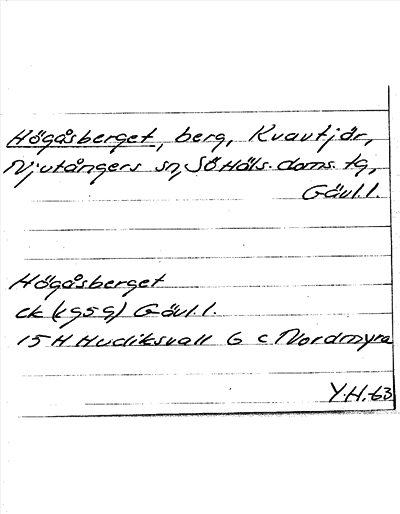 Högåsberget, berg, Kvavtjär,
Njutångers sn, SÖ Häls. doms. tg,
Gävl.l.
Högåsberget
ek (1959) Gävl.l.
15 H Hudiksvall 6 c Nordmyra
Y.H.-63